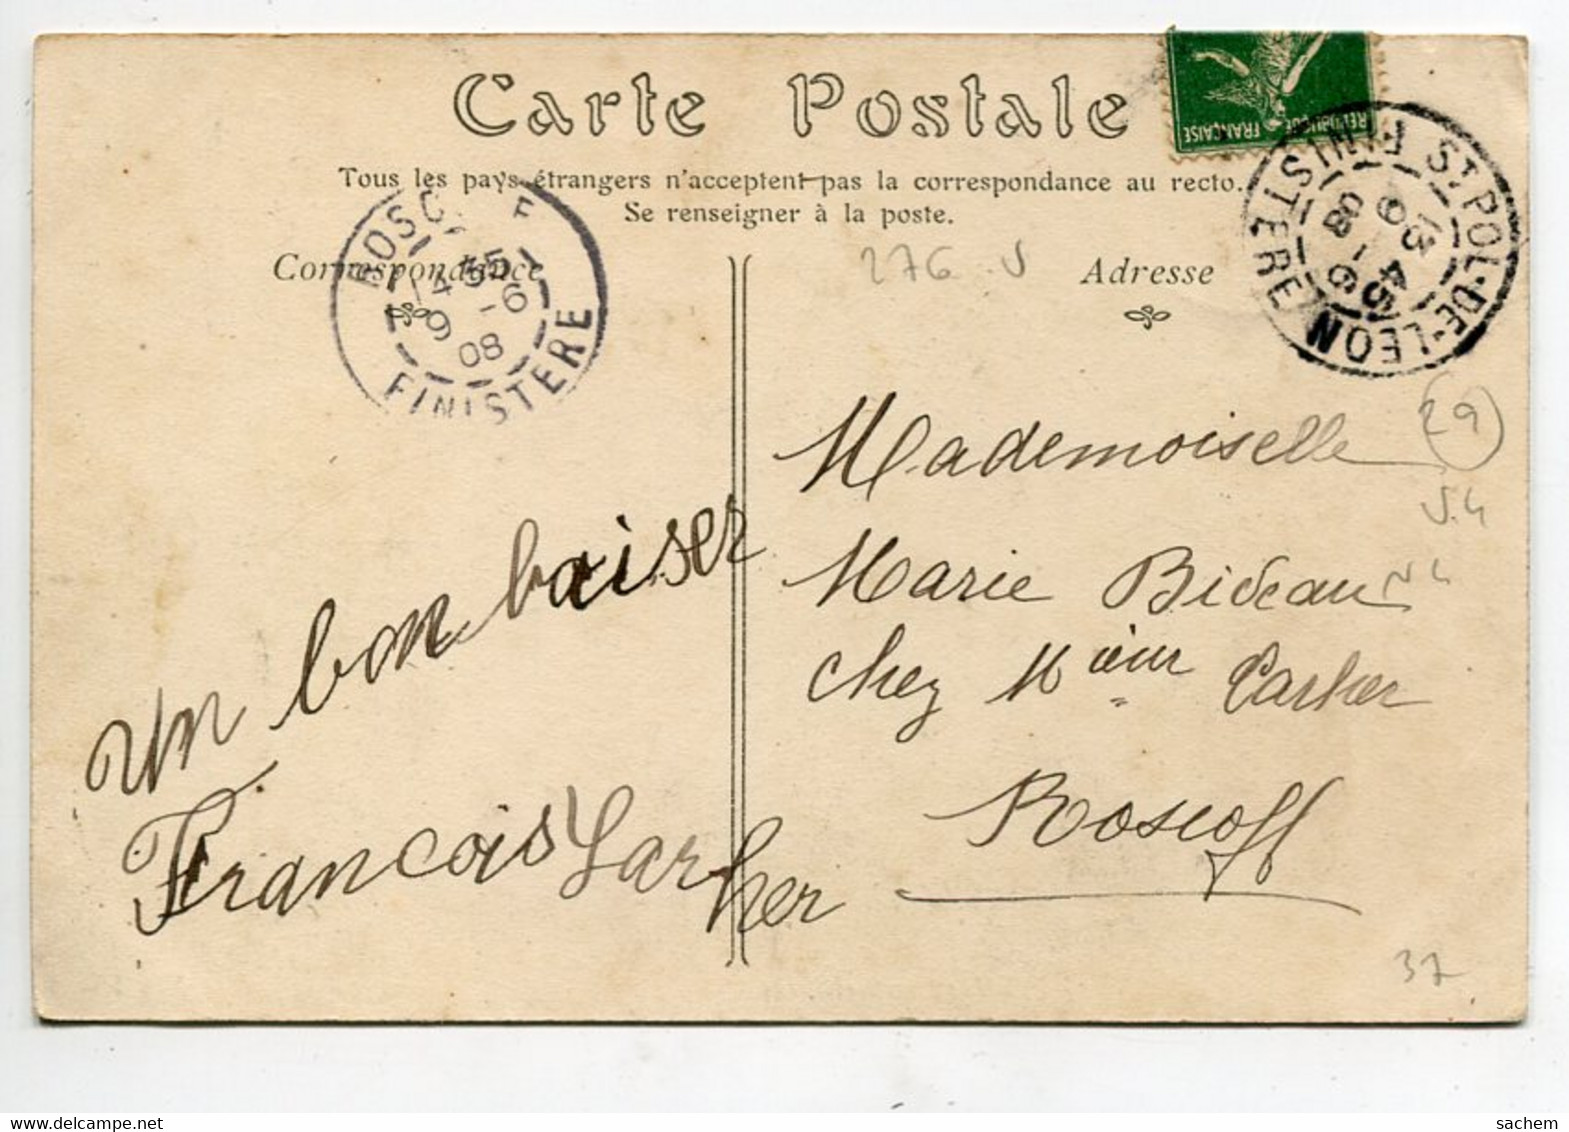 Carte Postale
RÉPUBLIQUE FRANÇAISE
Tous les pays étrangers n'acceptent pas la correspondance au recto.
Se renseigner à la poste.
ST POL-DE-LEON
13 45
9 -6
08
FINISTERE
ROSCOFF
14 55
9 -6
08
FINISTERE
Correspondance
276
Adresse
Un bon baiser
François Larher
29
Mademoiselle
Marie Bideau
chez Larher
Roscoff
37
sachem